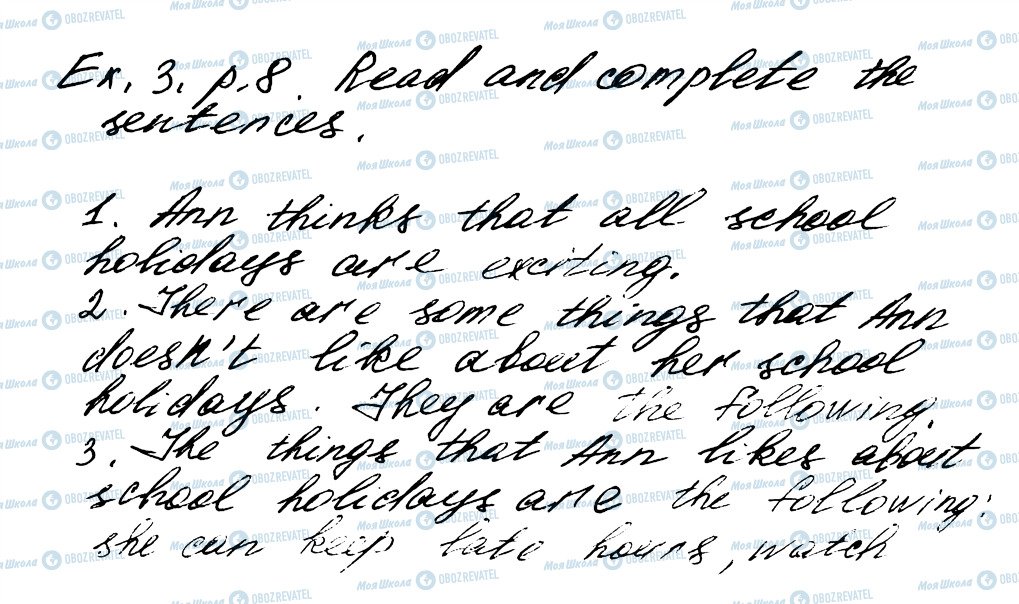 Ex. 3. p. 8. Read and complete the
sentences.
1. Ann thinks that all school
holidays are exciting.
2. There are some things that Ann
doesn't like about her school
holidays. They are the following.
3. The things that Ann likes about
school holidays are the following:
she can keep late hours, watch